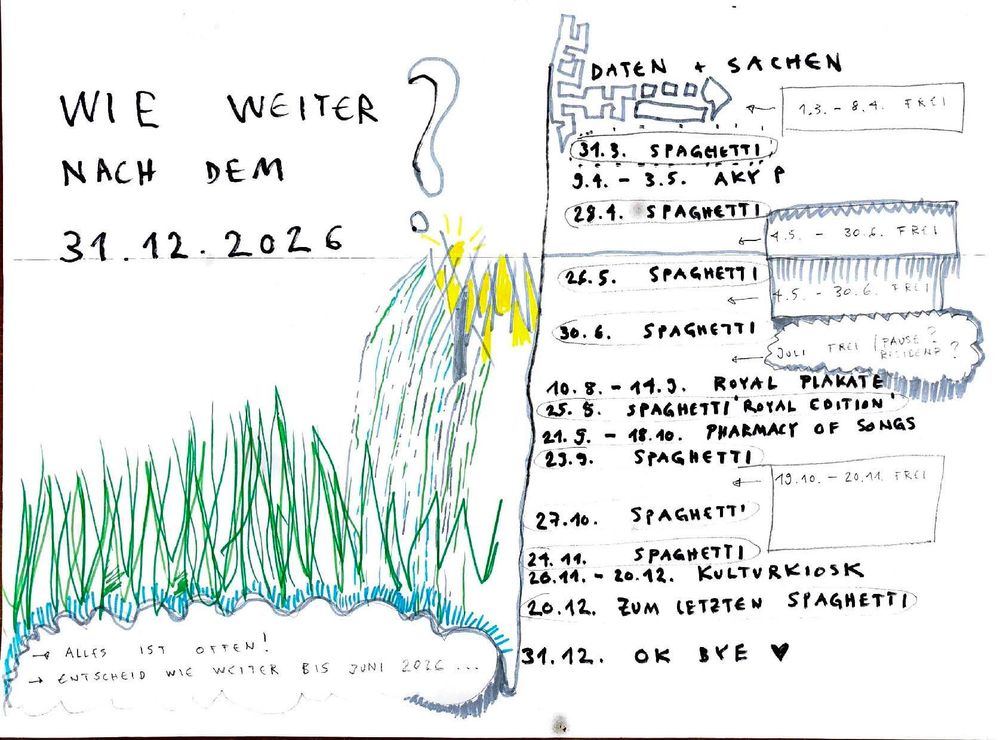 WIE WEITER ?
NACH DEM
31.12.2026
→ ALLES IST OFFEN!
→ ENTSCHEID WIE WEITER BIS JUNI 2026 ...
DATEN + SACHEN
← 1.3. - 8.4. FREI
31.3. SPAGHETTI
9.4. - 3.5. AKY P
28.4. SPAGHETTI
← 4.5. - 30.6. FREI
26.5. SPAGHETTI
← 4.5. - 30.6. FREI
30.6. SPAGHETTI
← JULI FREI / PAUSE?
RESIDENZ?
10.8. - 14.9. ROYAL PLAKATE
25.8. SPAGHETTI 'ROYAL EDITION'
21.9. - 18.10. PHARMACY OF SONGS
29.9. SPAGHETTI
← 19.10. - 20.11. FREI
27.10. SPAGHETTI
24.11. SPAGHETTI
20.11. - 20.12. KULTURKIOSK
20.12. ZUM LETZTEN SPAGHETTI
31.12. OK BYE ♥